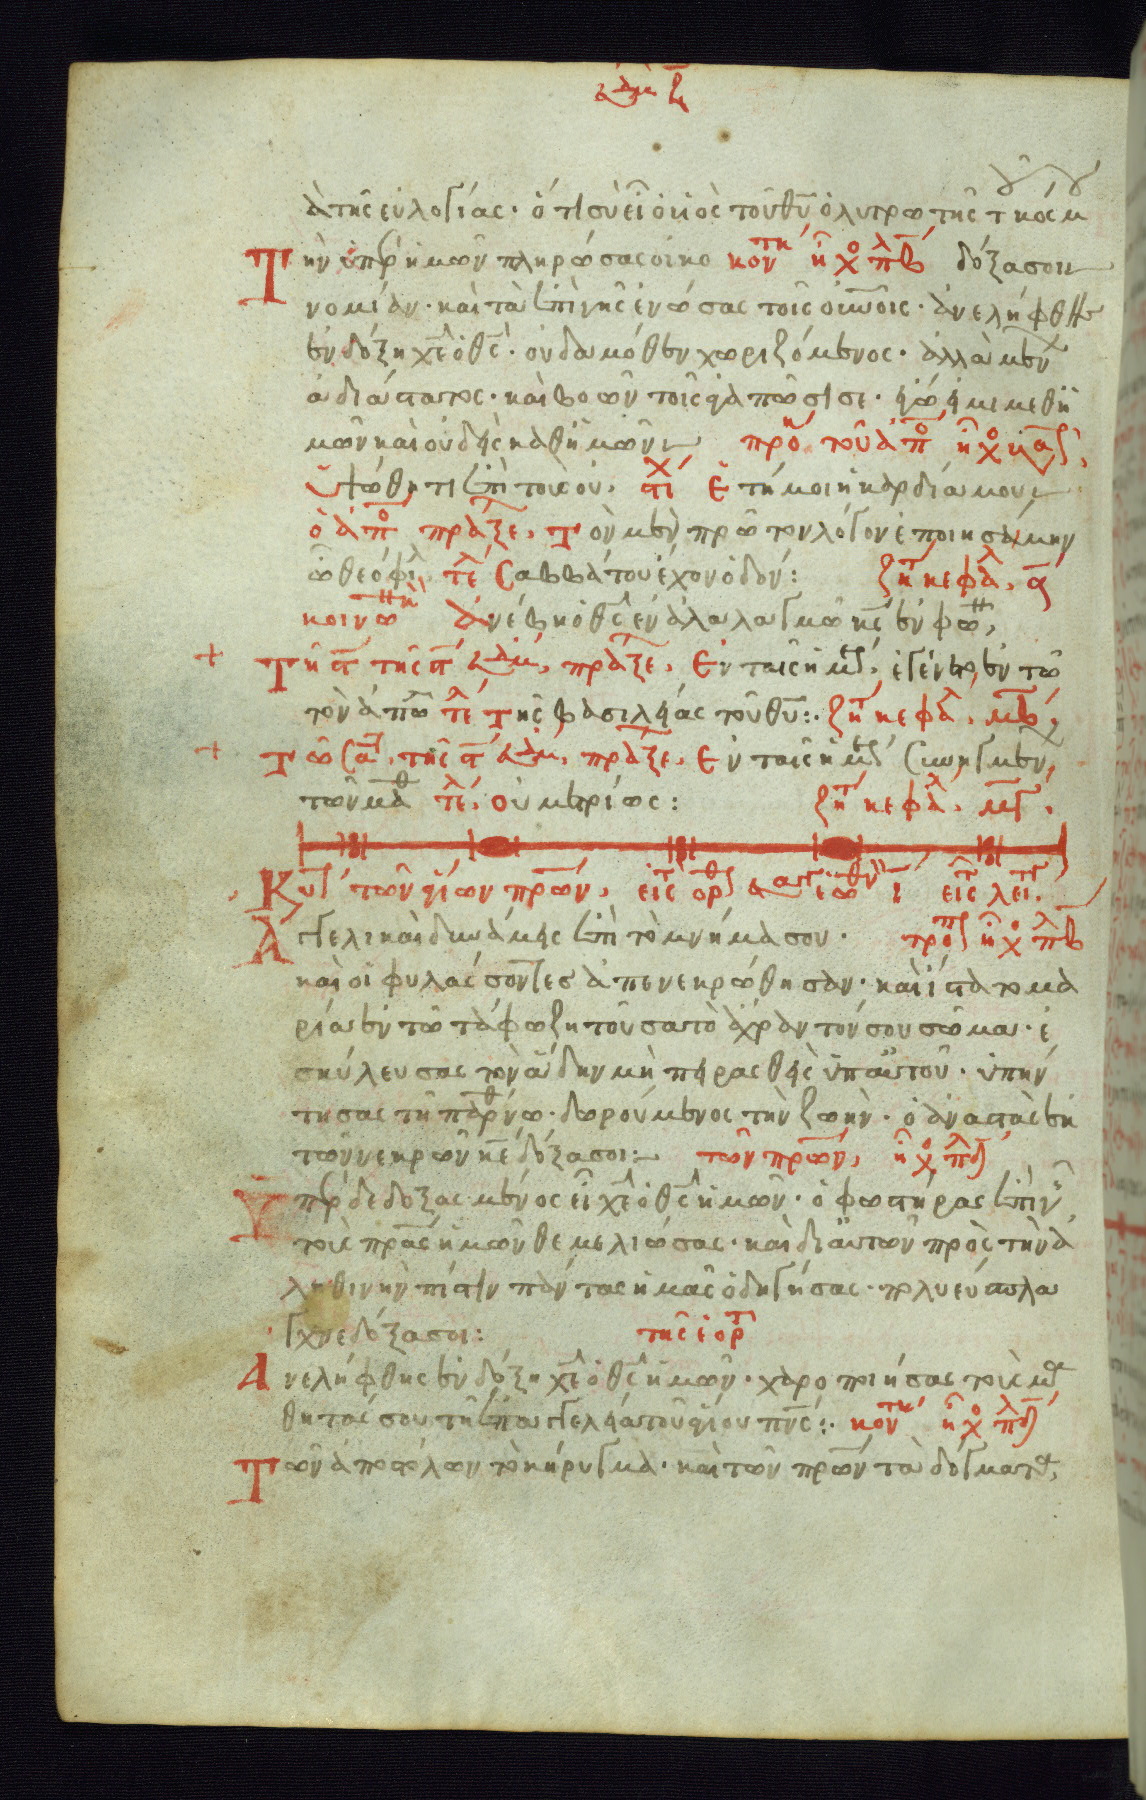 ἑβδομὰς ζ
ὰ τῆς εὐλογίας· ὅτι σὺ εἶ ὁ υἱὸς τοῦ θυ ὁ λυτρωτὴς τ κοσμ
Τὴν ὑπὲρ ἡμῶν πληρώσας οἰκο κον ἦχο πλ β δόξα σοι
νομίαν· καὶ τὰ ἐπὶ γῆς ἑνώσας τοῖς οὐνοις· ἀνελήφθης
ἐν δόξῃ χε ὁ θς· οὐδαμόθεν χωριζόμενος· ἀλλὰ μένων
ἀδιάστατος· καὶ βοῶν τοῖς ἀγαπῶσί σε· ἐγώ εἰμι μεθ ὑ
μῶν καὶ οὐδεὶς καθ ὑμῶν προκ τοῦ ἀπο ἦχο
Ὑψώθητι ἐπὶ τοὺς οὐ στι Ἑτοίμη ἡ καρδία μου
ὁ ἀπο πράξε Τὸν μὲν πρῶτον λόγον ἐποιησάμην
ὦ θεόφιλ τε σαββάτου ἔχον ὁδόν: ζη κεφα α
κοινων ἀνέβη ὁ θς ἐν ἀλαλαγμῶ κς ἐν φων
Τῇ β τῆς ζ ἑβδομ πράξε Ἐν ταῖς ἡμ ἐγένετο ἐν τῶ
τὸν ἀπολλῶ τε τῆς βασιλείας τοῦ θυ: ζη κεφα μβ
Τῶ σα τῆς ζ ἑβδομ πράξε Ἐν ταῖς ἡμ εἰσήγομεν
τῶν μαθ τε οὐ μετρίως: ζη κεφα
Κυ τῶν ἁγίων πρων εἰς ὀρθ εἰς λει
Ἀγγελικαὶ δυνάμεις ἐπὶ τὸ μνῆμα σου· τροπ ἦχο πλ β
καὶ οἱ φυλάσσοντες ἀπενεκρώθησαν· καὶ ἵστατο μα
ρία ἐν τῶ τάφω ζητοῦσα τὸ ἄχραντόν σου σῶμα· ἐ
σκύλευσας τὸν ἅδην μὴ πειρασθεὶς ὑπ αὐτοῦ· ὑπήν
τησας τῇ παρθένω· δωρούμενος τὴν ζωήν· ὁ ἀναστὰς ἐκ
τῶν νεκρῶν κε δόξα σοι: τῶν πρων ἦχο πλ δ
Ὑπερδεδοξασμένος εἶ χε ὁ θς ἡμῶν· ὁ φωστῆρας ἐπὶ γῆς
τοὺς πρας ἡμῶν θεμελιώσας· καὶ δι αὐτῶν πρὸς τὴν ἀ
ληθινὴν πίστιν πάντας ἡμᾶς ὁδηγήσας· πολυεύσπλα
γχνε δόξα σοι: τῆς ἑορτ
Ἀνελήφθης ἐν δόξῃ χε ὁ θς ἡμῶν· χαροποιήσας τοὺς μα
θητάς σου τῇ ἐπαγγελία τοῦ ἁγίου πνς: κον ἦχο πλ δ
Τῶν ἀποστόλων τὸ κήρυγμα· καὶ τῶν πρων τὰ δόγματα